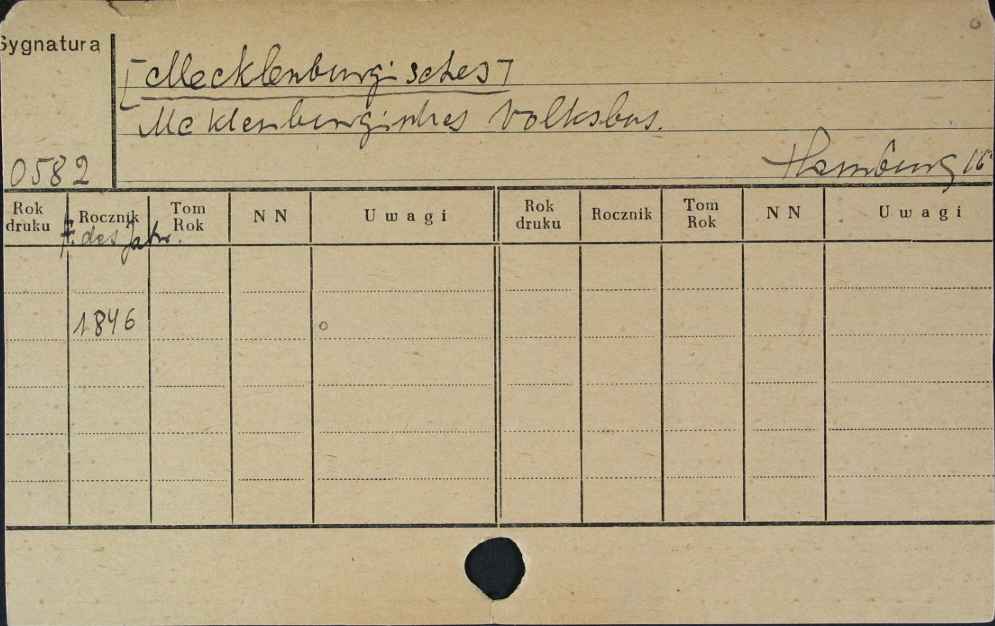 Sygnatura
[Mecklenburgisches]
Meklenburgisches Volksbus.
0582
Hamburg 16°
Rok druku Rocznik Tom Rok NN Uwagi Rok druku Rocznik Tom Rok NN Uwagi
f. das Jahr.
1846